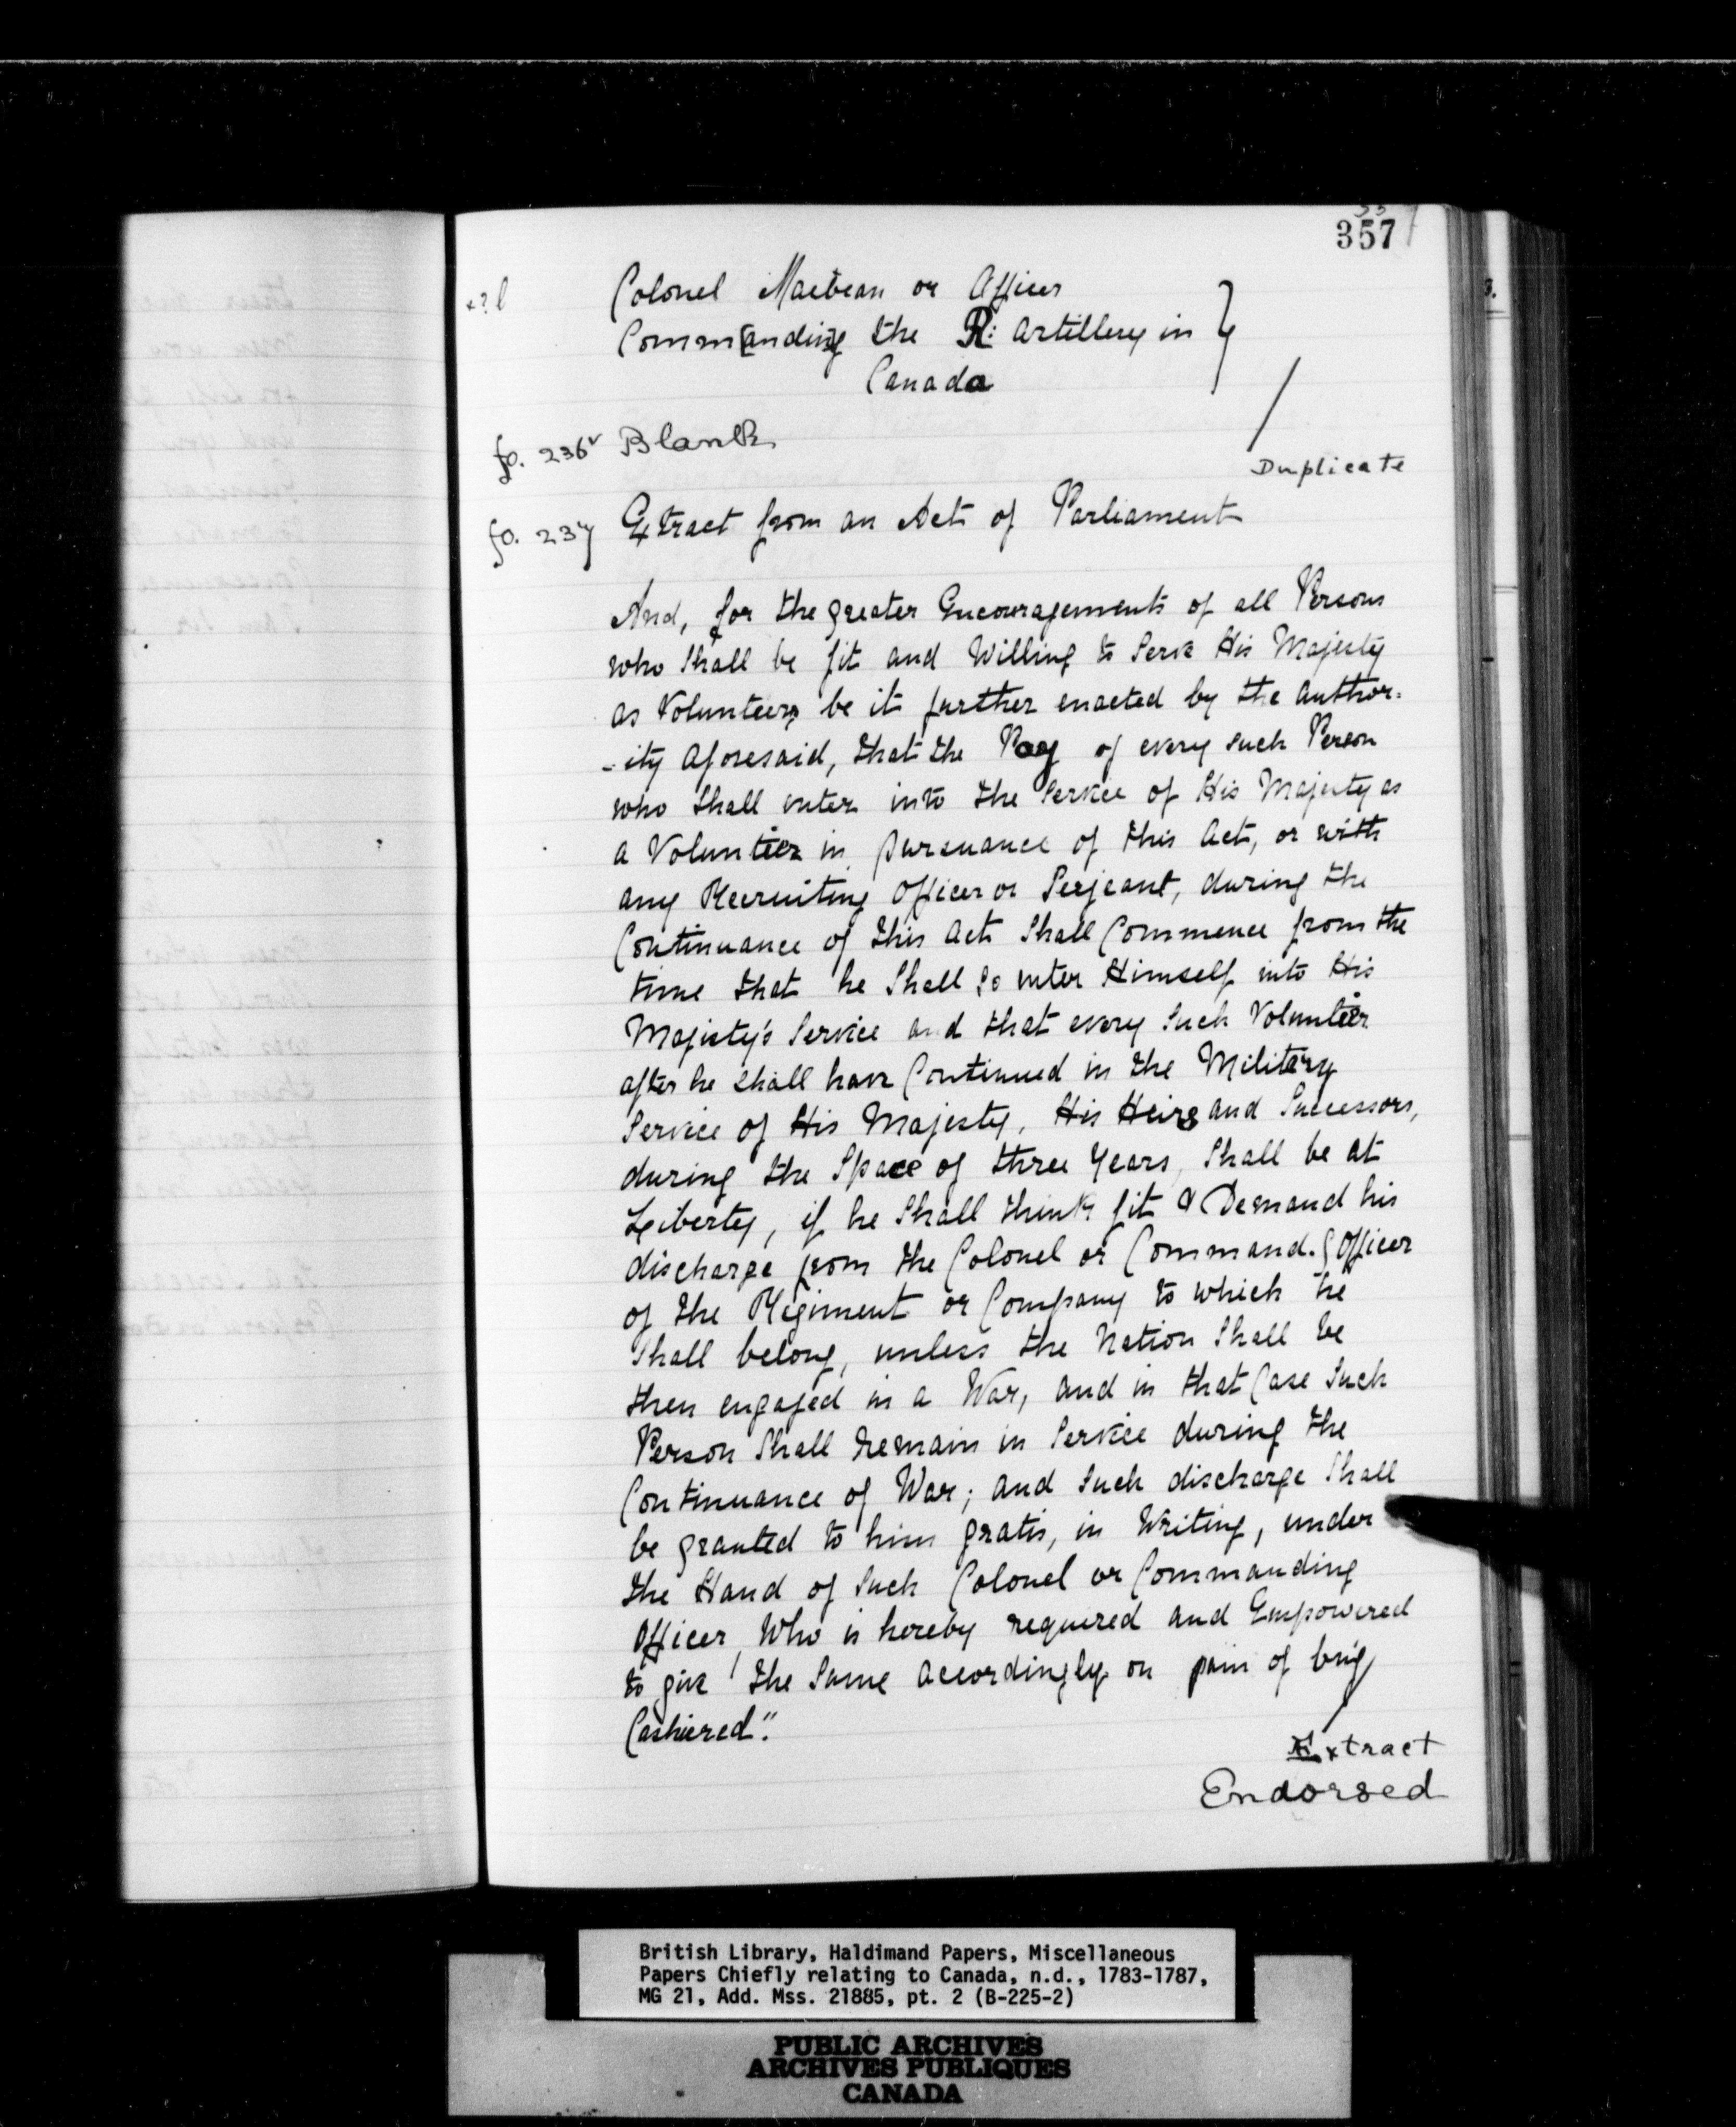 357
Colonel Macbean or Officer
Comm[andin]g the R: Artillery in
Canada
fo. 236v Blank
Duplicate
fo. 237 Extract from an Act of Parliament
And, for the greater Encouragements of all Persons
who Shall be fit and Willing to Serve His Majesty
as Volunteers, be it further enacted by the Author-
-ity Aforesaid, that the Pay of every such Person
who Shall enter into the Service of His Majesty as
a Volunteer in pursuance of this Act, or with
any Recruiting Officer or Serjeant, during the
Continuance of this Act Shall Commence from the
time that he Shall So enter Himself into His
Majesty's Service and that every Such Volunteer
after he shall have Continued in the Military
Service of His Majesty, His Heirs and Successors,
during the Space of three Years, Shall be at
Liberty, if he Shall think fit & Demand his
discharge from the Colonel or Command.g Officer
of the Regiment or Company to which he
Shall belong, unless the Nation Shall be
then engaged in a War, and in that Case Such
Person Shall remain in Service during the
Continuance of War; and Such discharge Shall
be granted to him gratis, in Writing, under
the Hand of Such Colonel or Commanding
Officer, Who is hereby required and Empowered
to give the Same accordingly on pain of being
Cashiered."
Extract
Endorsed
British Library, Haldimand Papers, Miscellaneous
Papers Chiefly relating to Canada, n.d., 1783-1787,
MG 21, Add. Mss. 21885, pt. 2 (B-225-2)
PUBLIC ARCHIVES
ARCHIVES PUBLIQUES
CANADA